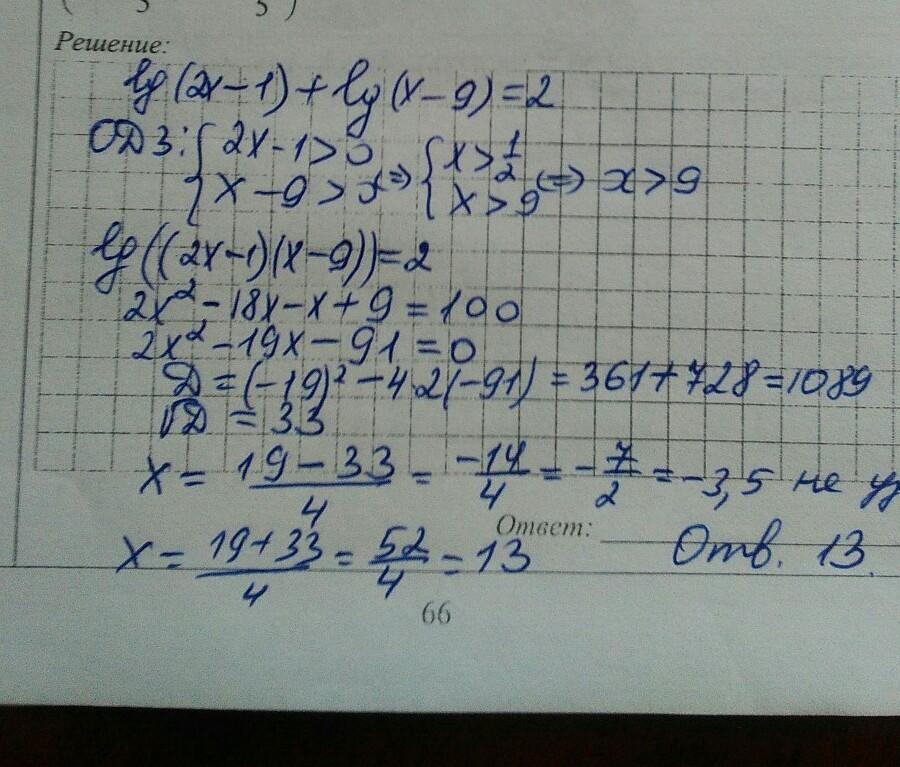 Решение:
lg(2x-1)+lg(x-9)=2
ОДЗ: { 2x-1>0
x-9>0 => { x>1/2
x>9 <=> x>9
lg((2x-1)(x-9))=2
2x²-18x-x+9=100
2x²-19x-91=0
D=(-19)²-4·2(-91)=361+728=1089
√D=33
x= (19-33)/4 = -14/4 = -7/2 = -3,5 не
Ответ:
x= (19+33)/4 = 52/4 = 13 Отв. 13.
66